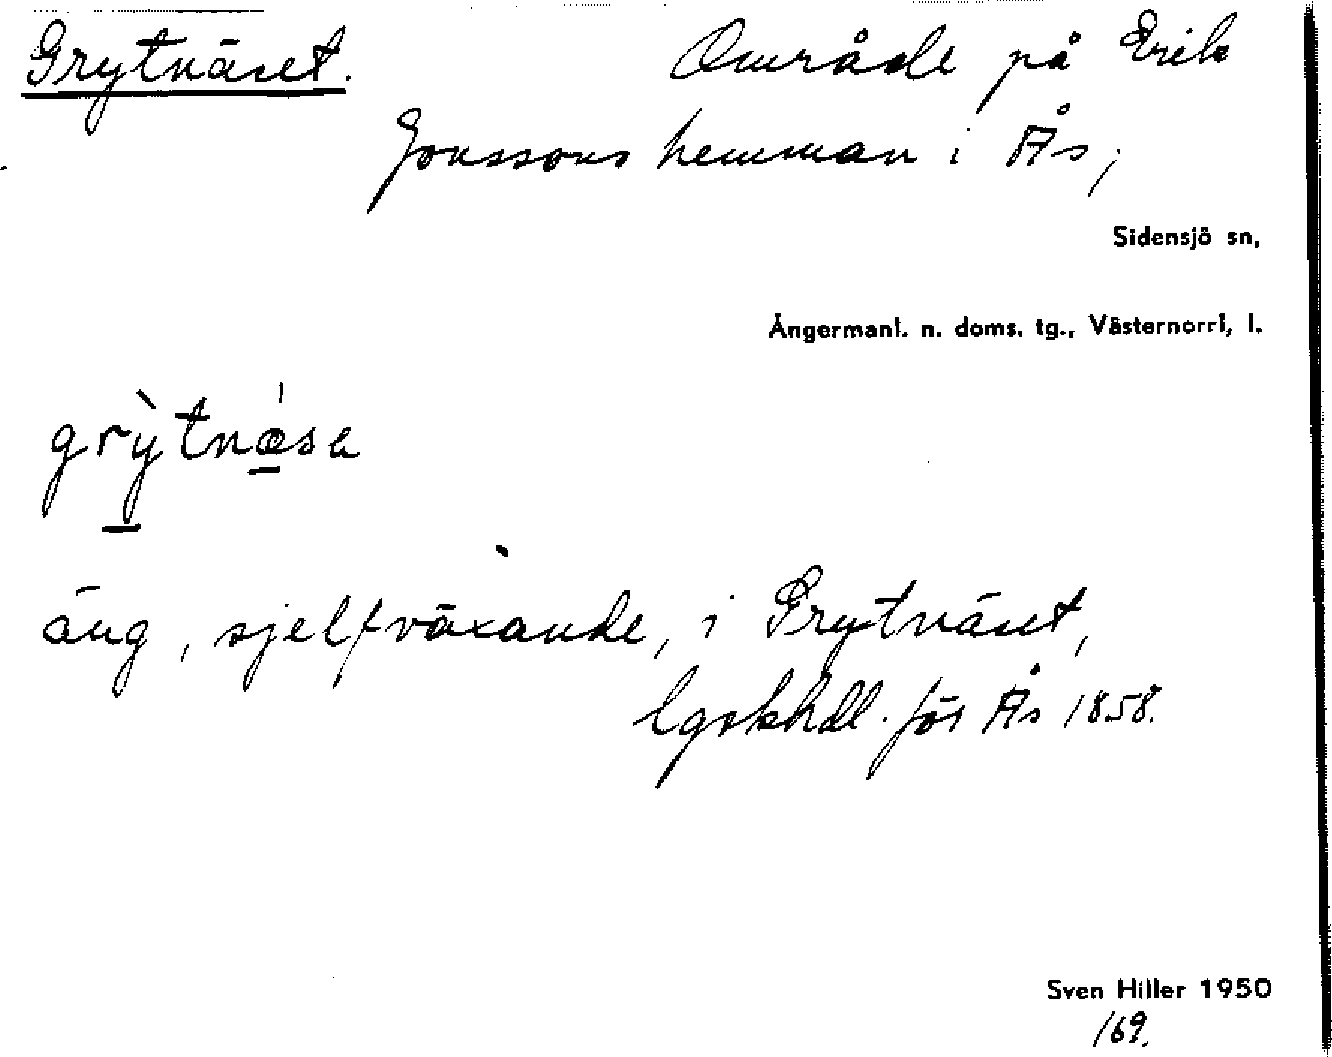 Grytnäset. Område på Erik
Jonssons hemman i Ås,
Sidensjö sn,
Ångermanl. n. doms. tg., Västernorrl, l.
grỳtnǽsa
äng, sjelfväxande, i Grytnäset,
lgskhdl. för Ås 1858.
Sven Hiller 1950
169.